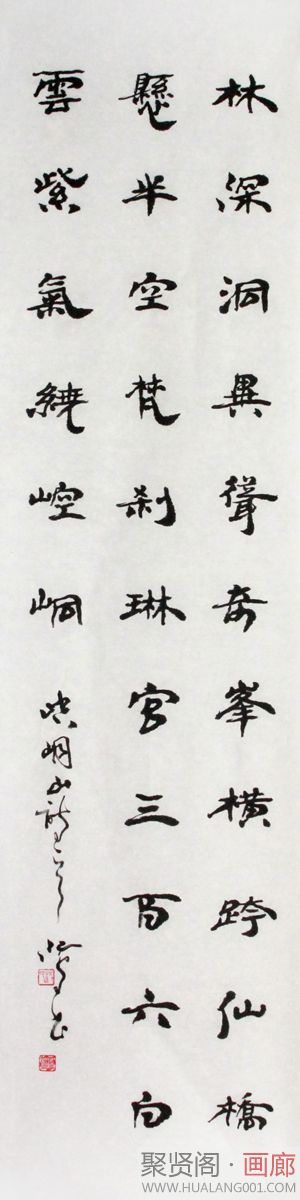 林深洞異聳奇峯橫跨仙橋
懸半空梵刹琳宮三百六白
雲紫氣繞崆峒
崆峒山詩
聚贤阁·画廊
WWW.HUALANG001.COM